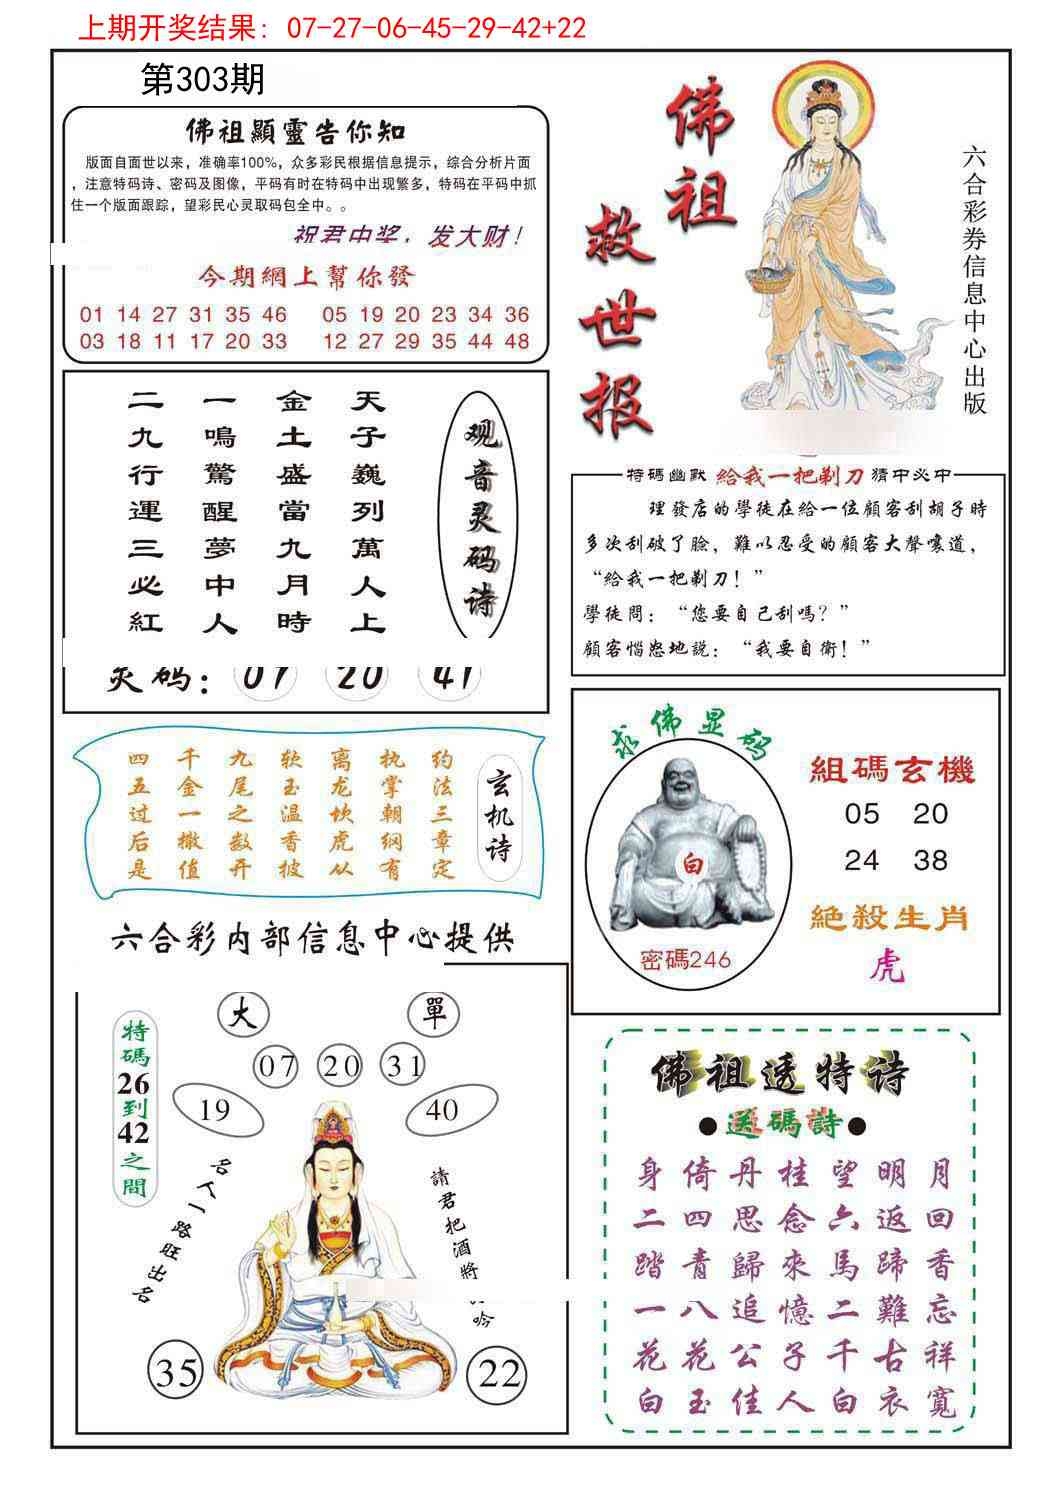 上期开奖结果：07-27-06-45-29-42+22
第303期
佛祖顯靈告你知
版面自面世以来，准确率100%，众多彩民根据信息提示，综合分析片面
，注意特码诗、密码及图像，平码有时在特码中出现繁多，特码在平码中抓
住一个版面跟踪，望彩民心灵取码包全中。。
祝君中奖，发大财！
今期網上幫你發
01 14 27 31 35 46 05 19 20 23 34 36
03 18 11 17 20 33 12 27 29 35 44 48
佛祖
救世报
六合彩券信息中心出版
观音灵码诗
天子巍列萬人上
金土盛當九月時
一鳴驚醒夢中人
二九行運三必紅
灵码：07 20 41
特碼幽默 給我一把剃刀 猜中必中
理發店的學徒在給一位顧客刮胡子時
多次刮破了臉，難以忍受的顧客大聲嚷道，
“給我一把剃刀！”
學徒問：“您要自己刮嗎？”
顧客惱怒地説：“我要自衛！”
玄机诗
约法三章定
执掌朝纲有
离龙坎虎从
软玉温香披
九尾之数开
千金一撒值
四五过后是
求佛显码
白
密碼246
組碼玄機
05 20
24 38
絕殺生肖
虎
六合彩内部信息中心提供
大 單
特碼26到42之間
07 20 31
19 40
名人一路旺出名
請君把酒將 吟
35 22
佛祖透特诗
●送碼詩●
身倚丹桂望明月
二四思念六返回
踏青歸來馬蹄香
一八追憶二難忘
花花公子千古祥
白玉佳人白衣寬